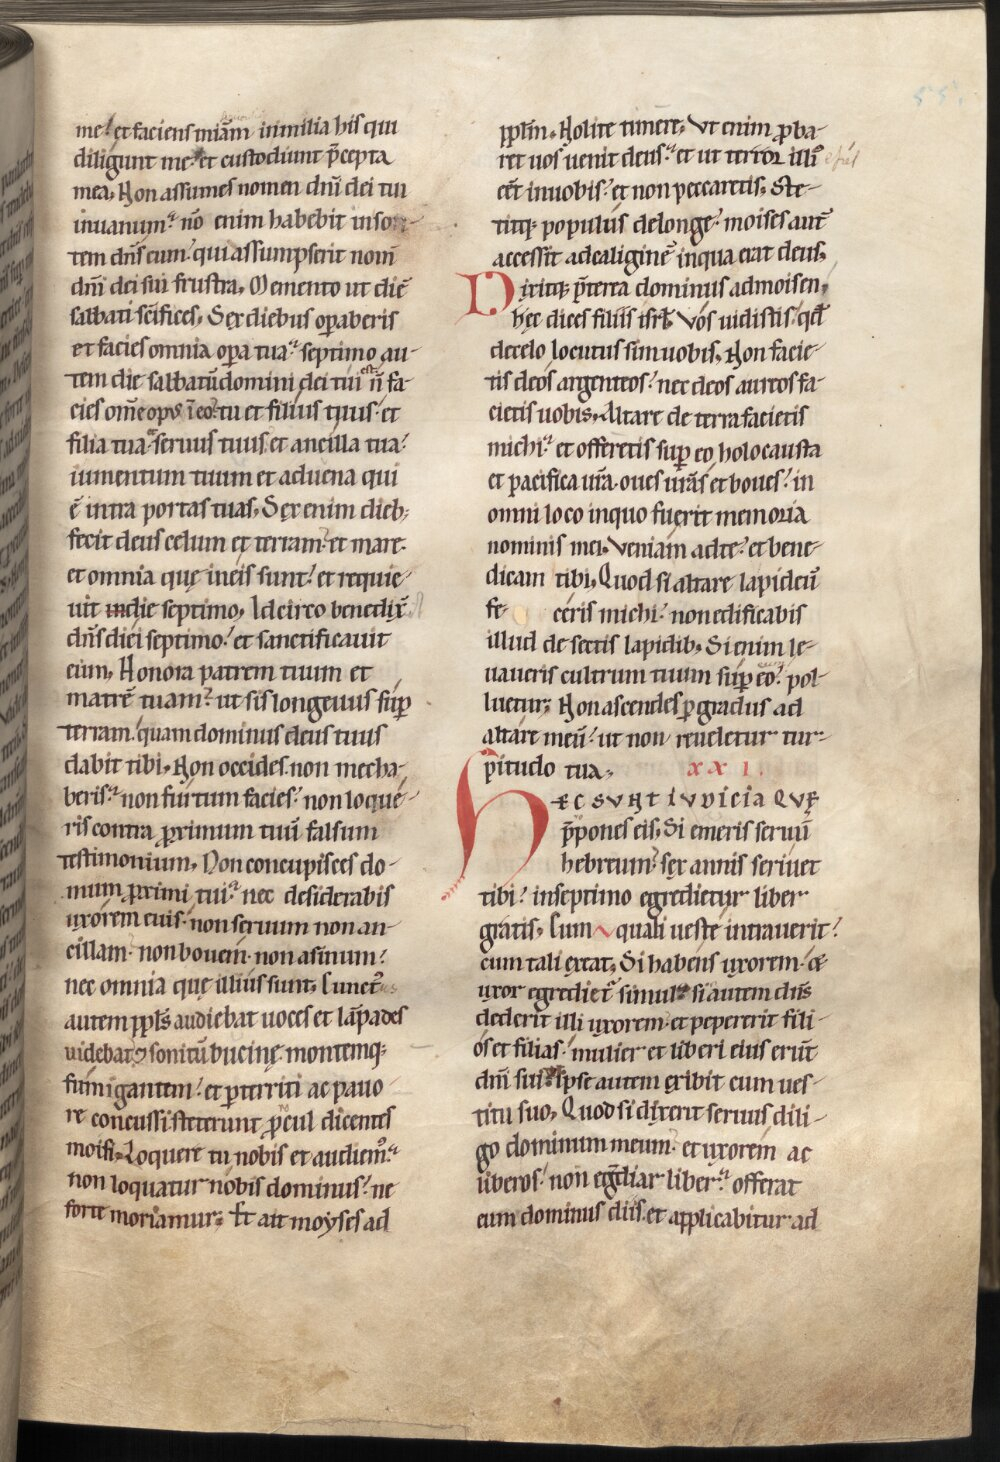 me. et faciens mīam in milia his qui
diligunt me. et custodiunt p̄cepta
mea. Non assumes nomen dn̄i dei tui
in uanum. nō enim habebit inson-
tem dn̄s eum. qui assumpserit nom̄
dn̄i dei sui frustra. Memento ut diē
sabbati sc̄ifices. Sex diebus oꝑaberis
et facies omnia oꝑa tua. septimo au-
tem die sabbatū domini dei tui ē. n̄ fa-
cies om̄e opus ī eo. tu et filius tuus. et
filia tua. seruus tuus. et ancilla tua.
iumentum tuum et aduena qui
ē intra portas tuas. Sex enim dieb;
fecit deus celum et terram. et mare.
et omnia quę in eis sunt. et requie-
uit in die septimo. Idcirco benedix̄
dn̄s diei septimo. et sanctificauit
eum. Honora patrem tuum et
matrē tuam. ut sis longeuus suꝑ
terram. quam dominus deus tuus
dabit tibi. Non occides. non mecha-
beris. non furtum facies. non loque-
ris contra ꝓximum tuū falsum
testimonium. Non concupisces do-
mum ꝓximi tui. nec desiderabis
uxorem eius. non seruum non an-
cillam. non bouem. non asinum.
nec omnia quę illius sunt. Cunct᷒
autem ppl̄s audiebat uoces et lāpades
videbat. sonitū bucinę. montemq;
fumigantem. et ꝑterriti ac pauo-
re concussi. steterunt ꝓcul dicentes
moisi. Loquere tu nobis et audiem᷒.
non loquatur nobis dominus. ne
forte moriamur. Et ait moyses ad
ppl̄m. Nolite timere. Vt enim ꝓba-
ret uos uenit deus. et ut terror illi᷒
eēt in uobis. et non peccaretis. Ste-
titq; populus de longe. moises aut̄
accessit ad caliginē in qua erat deus.
Dixitq; p̄terea dominus ad moisen.
hęc dices filiis isrl̄. Vos uidistis. qđ
de celo locutus sim uobis. Non facie-
tis deos argenteos. nec deos aureos fa-
cietis uobis. Altare de terra facietis
michi. et offeretis suꝑ eo holocausta
et pacifica ur̄a. oues ur̄as et boues. in
omni loco in quo fuerit memoria
nominis mei. Veniam ad te. et bene-
dicam tibi. Quod si altare lapideū
fe ceris michi. non edificabis
illud de sectis lapidib;. Si enim le-
uaueris cultrum tuum suꝑ eo. pol-
luetur. Non ascendes ꝑ gradus ad
altare meū. ut non reueletur tur-
pitudo tua. xxi.
HEC SVNT IVDICIA QVE
p̄pones eis. Si emeris seruū
hebreum. sex annis seruiet
tibi. in septimo egredietur liber
gratis. Cum quali ueste intrauerit.
cum tali exeat. Si habens uxorem. &
uxor egrediet᷒ simul. si autem dn̄s
dederit illi uxorem. et pepererit fili-
os et filias. mulier et liberi eius erūt
dn̄i sui. Ipse autem exibit cum ues-
titu suo. Quod si dixerit seruus dili-
go dominum meum. et uxorem ac
liberos. non egrediar liber. offerat
eum dominus diis. et applicabitur ad